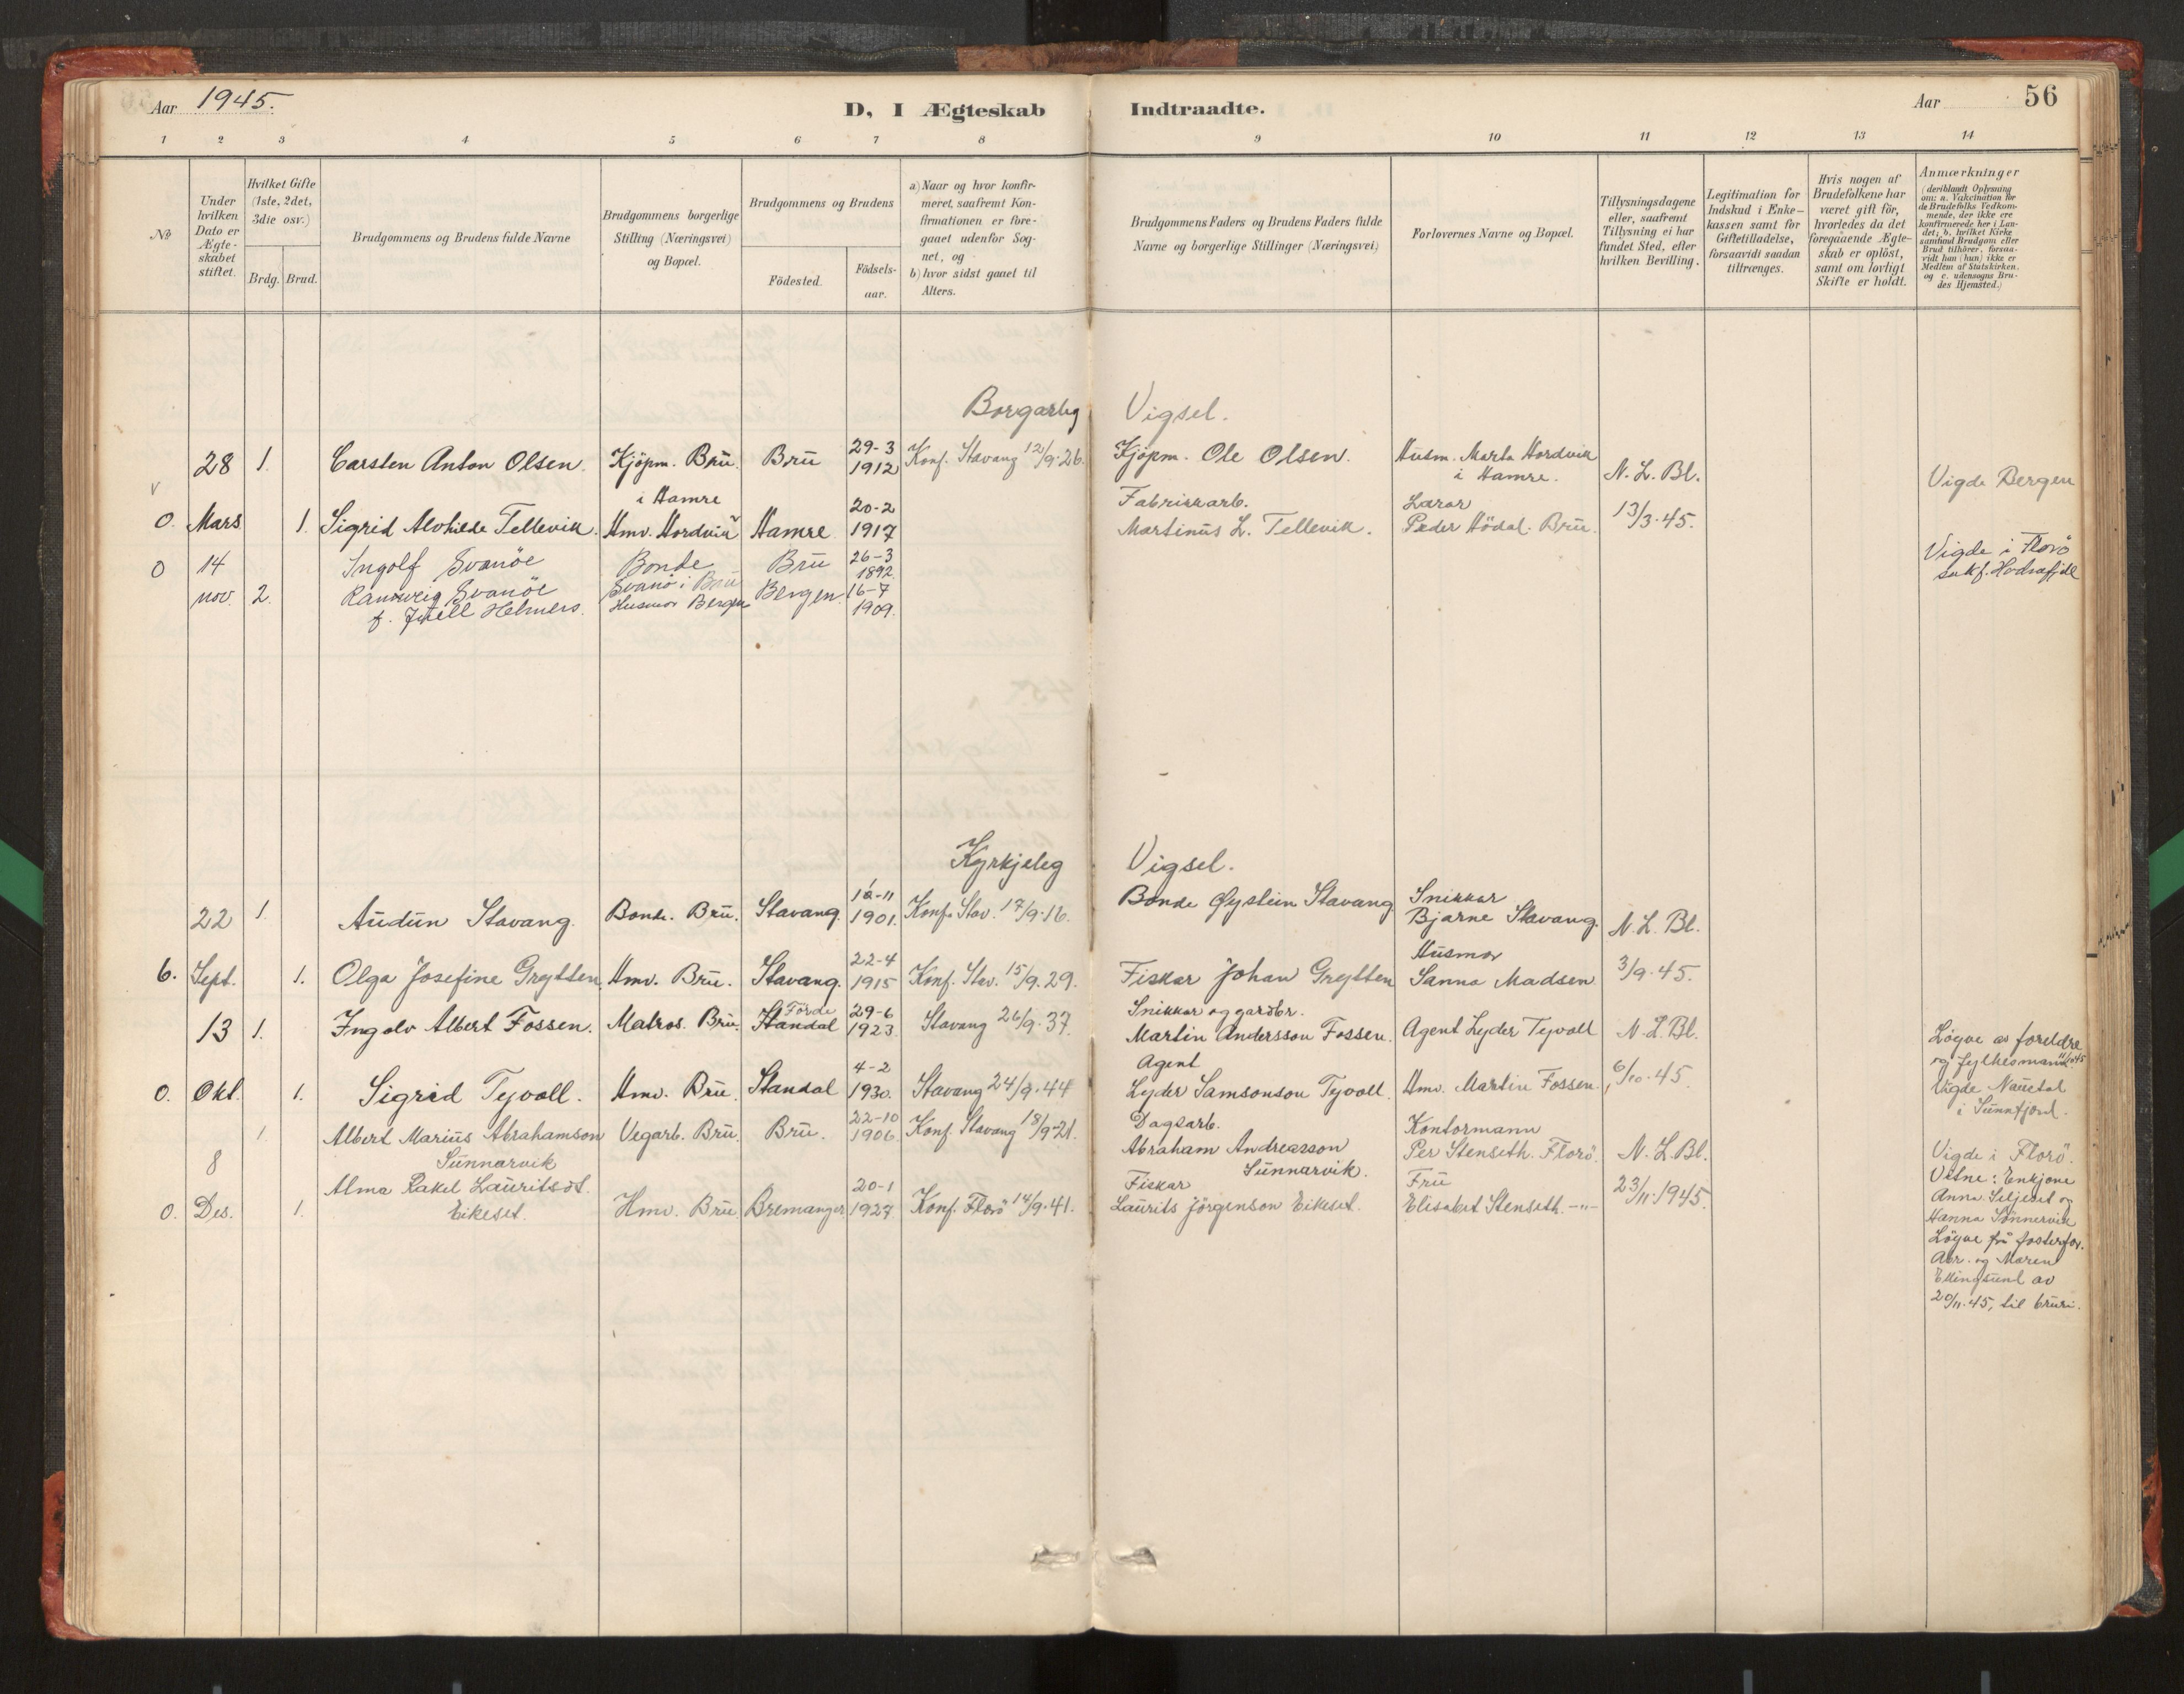 Aar 1945.
D, I Ægteskab Indtraadte.
Aar 56
1 2 3 4 5 6 7 8 9 10 11 12 13 14
No
Under hvilken Dato er Ægte-skabet stiftet.
Hvilket Gifte (1ste, 2det, 3die osv.)
Brdg. Brud.
Brudgommens og Brudens fulde Navne
Brudgommens borgerlige Stilling (Næringsvei) og Bopæl.
Brudgommens og Brudens
Födested. Födsels-aar.
a) Naar og hvor konfir-meret, saafremt Kon-firmationen er fore-gaaet udenfor Sog-net, og
b) hvor sidst gaaet til Alters.
Brudgommens Faders og Brudens Faders fulde Navne og borgerlige Stillinger (Næringsvei)
Forlovernes Navne og Bopæl.
Tillysningsdagene eller, saafremt Tillysning ei har fundet Sted, efter hvilken Bevilling.
Legitimation for Indskud i Enke-kassen samt for Giftetilladelse, forsaavidt saadan tiltrænges.
Hvis nogen af Brudefolkene har været gift för, hvorledes da det foregaaende Ægte-skab er oplöst, samt om lovligt Skifte er holdt.
Anmærkninger (deriblandt Oplysning om: a. Vakcination for de Brudefolks Vedkom-mende, der ikke ere konfirmerede her i Lan-det; b. hvilket Kirke-samfund Brudgom eller Brud tilhörer, forsaa-vidt han (hun) ikke er Medlem af Statskirken, og c. udensogns Bru-des Hjemsted.)
Borgarleg Vigsel.
28 1. Carsten Anton Olsen. Kjöpm. Bru. Bru 29-3 1912 Konf. Stavang 12/9.26. Kjöpm. Ole Olsen. Husm. Marta Hordvik i Hamre. N. L. Bl. Vigde Bergen
0. Mars 1. Sigrid Alvhilde Tellevik. i Hamre Hmv. Hordvik Hamre 20-2 1917 Fabrikkarb. Martinus L. Tellevik. Lærar Peder Hödal. Bru. 13/3.45.
0 14 Ingolf Svanöe Bonde Svanö i Bru Bru 26-3 1892 Vigde i Florö
nov. 2. Rannveig Svanöe Husmor Bergen Bergen 16-7 1909.
Kyrkjeleg Vigsel.
22 1. Audun Stavang. Bonde. Bru. Stavang. 1901. Konf. Stav. 17/9.16. Bonde Øystein Stavang Snikkar Bjarne Stavang. N. L. Bl.
6. Sept. 1. Olga Josefine Grytten. Hmv. Bru. Stavang. 22-4 1915 Konf. Stav. 15/9.29. Fiskar Johan Grytten Husmor Sanna Madsen 3/9.45.
13 1. Ingolv Albert Fossen. Matros. Bru. Förde Standal 29-6 1923 Stavang 26/9.37. Snikkar og gardbr. Martin Andersson Fossen. Agent Lyder Tyvoll N. L. Bl. Löyve av foreldre og fylkesmann
0. Okt. 1. Sigrid Tyvoll. Hmv. Bru. Standal 4-2 1930. Stavang 24/9.44 Agent Lyder Samsonson Tyvoll. Hmv. Martin Fossen. 6/10.45. Vigde Naustdal i Sunnfjord.
1. Albert Marius Abrahamson Vegarb. Bru. Bru. 22-10 1906. Konf. Stavang 18/9-21. Dagsarb. Abraham Andreasson Sunnarvik. Kontormann Per Stenseth. Florö. N. L. Bl. Vigde i Florö.
8 Sunnarvik
0. Des. 1. Alma Rakel Lauritsdt. Eikeset. Hmv. Bru. Bremanger. 20-1 1927. Konf. Florö 14/9.41. Fiskar Laurits Jörgenson Eikeset. Fru Elisabet Stenseth. -"- 23/11.1945.
Vitne: Enkjone
Anna Seljeset og
Hanna Sönnervik
Löyve frå fosterfor.
Abr. og Maren
Ellingsund av
20/11.45, til bruri.